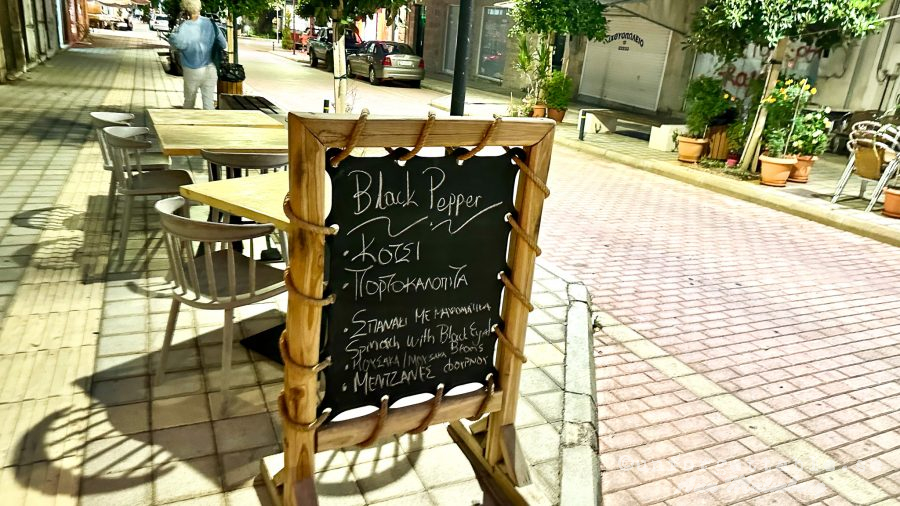 Black Pepper
· ΚΟΤΣΙ
· ΠΟΡΤΟΚΑΛΟΠΙΤΑ
· ΣΠΑΝΑΚΙ ΜΕ ΜΑΥΡΟΜΑΤΙΚΑ
Spinach with Black Eyed
Beans
· ΜΟΥΣΑΚΑ/ΜΟΥΣΑΚΑ
· ΜΕΛΤΖΑΝΕΣ ΦΟΥΡΝΟΥ